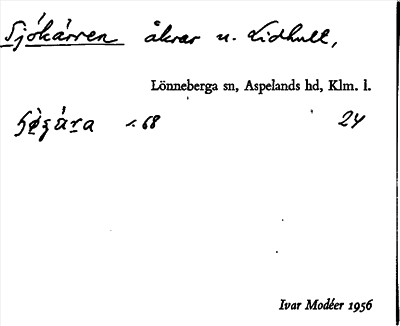 Sjökärren åkrar u. Lidhult,
Lönneberga sn, Aspelands hd, Klm. l.
s. 68 24
Ivar Modéer 1956